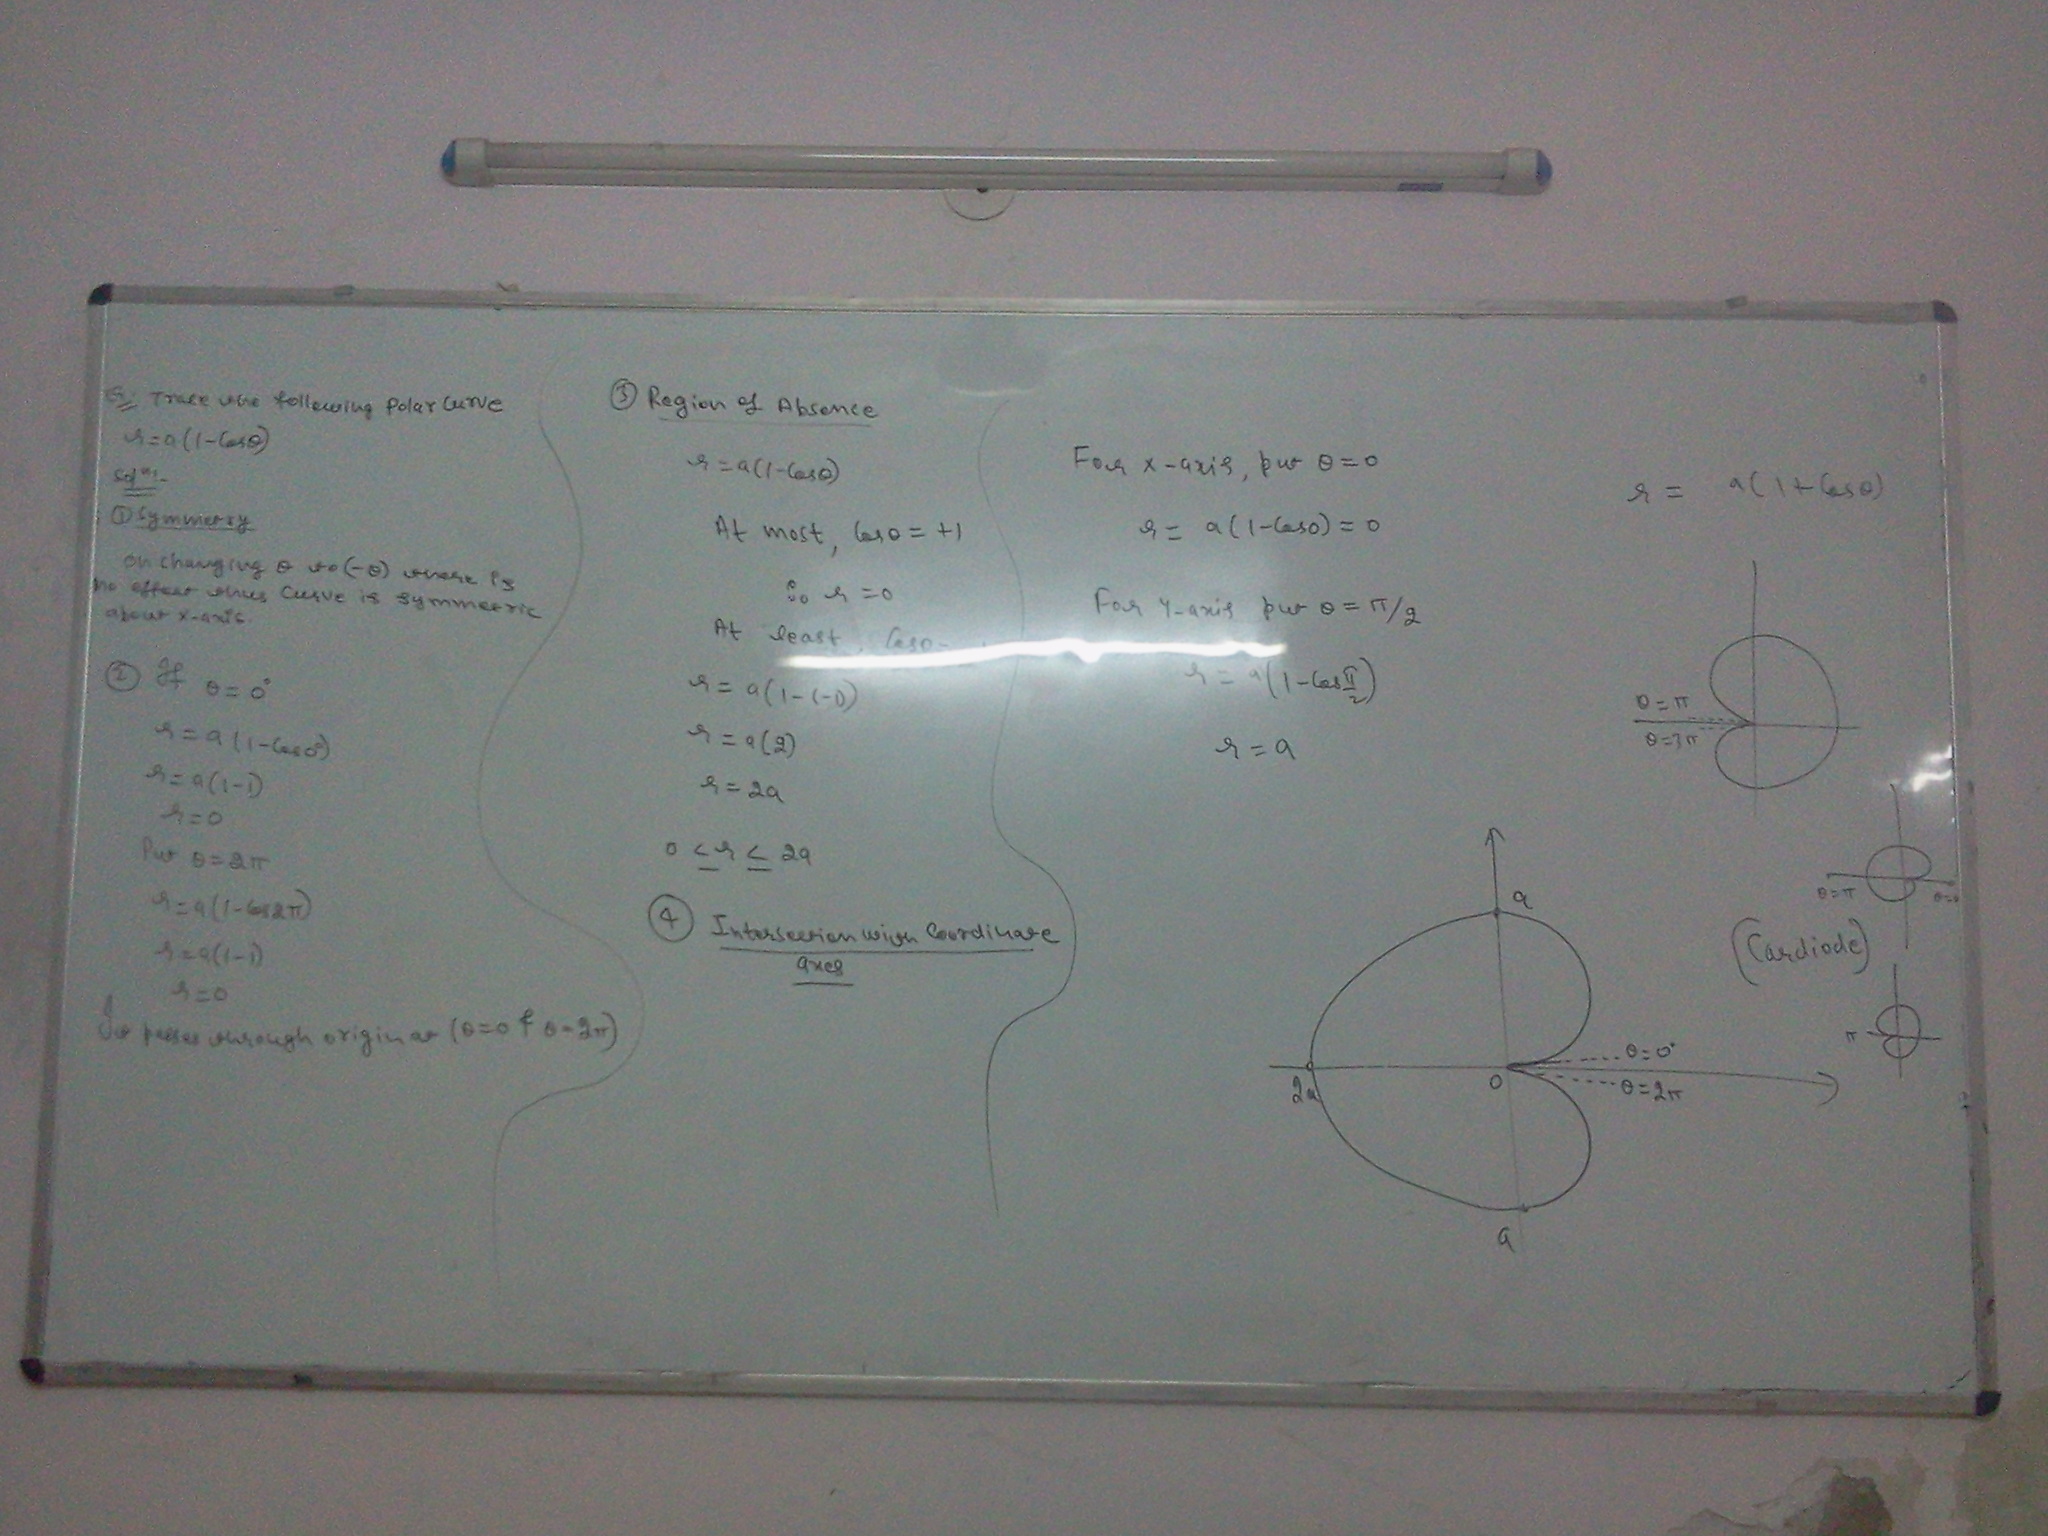 Q: Trace the following Polar Curve
r=a(1-Cosθ)
Solⁿ:-
① Symmetry
On changing θ to (-θ) there is
no effect thus Curve is symmetric
about x-axis.
② If θ=0°
r=a(1-Cos0°)
r=a(1-1)
r=0
Put θ=2π
r=a(1-Cos2π)
r=a(1-1)
r=0
It passes through origin at (θ=0 & θ=2π)
③ Region of Absence
r=a(1-Cosθ)
At most, Cosθ=+1
So r=0
At least, Cosθ=
r=a(1-(-1))
r=a(2)
r=2a
0 ≤ r ≤ 2a
④ Intersection with Coordinate
axes
For x-axis, put θ=0
r= a(1-Cos0)=0
For Y-axis put θ=π/2
r= a(1-Cos π/2)
r=a
r= a(1+Cosθ)
θ=π
θ=3π
θ=π
θ=0
(Cardiode)
π
a
2a
0
θ=0°
θ=2π
a